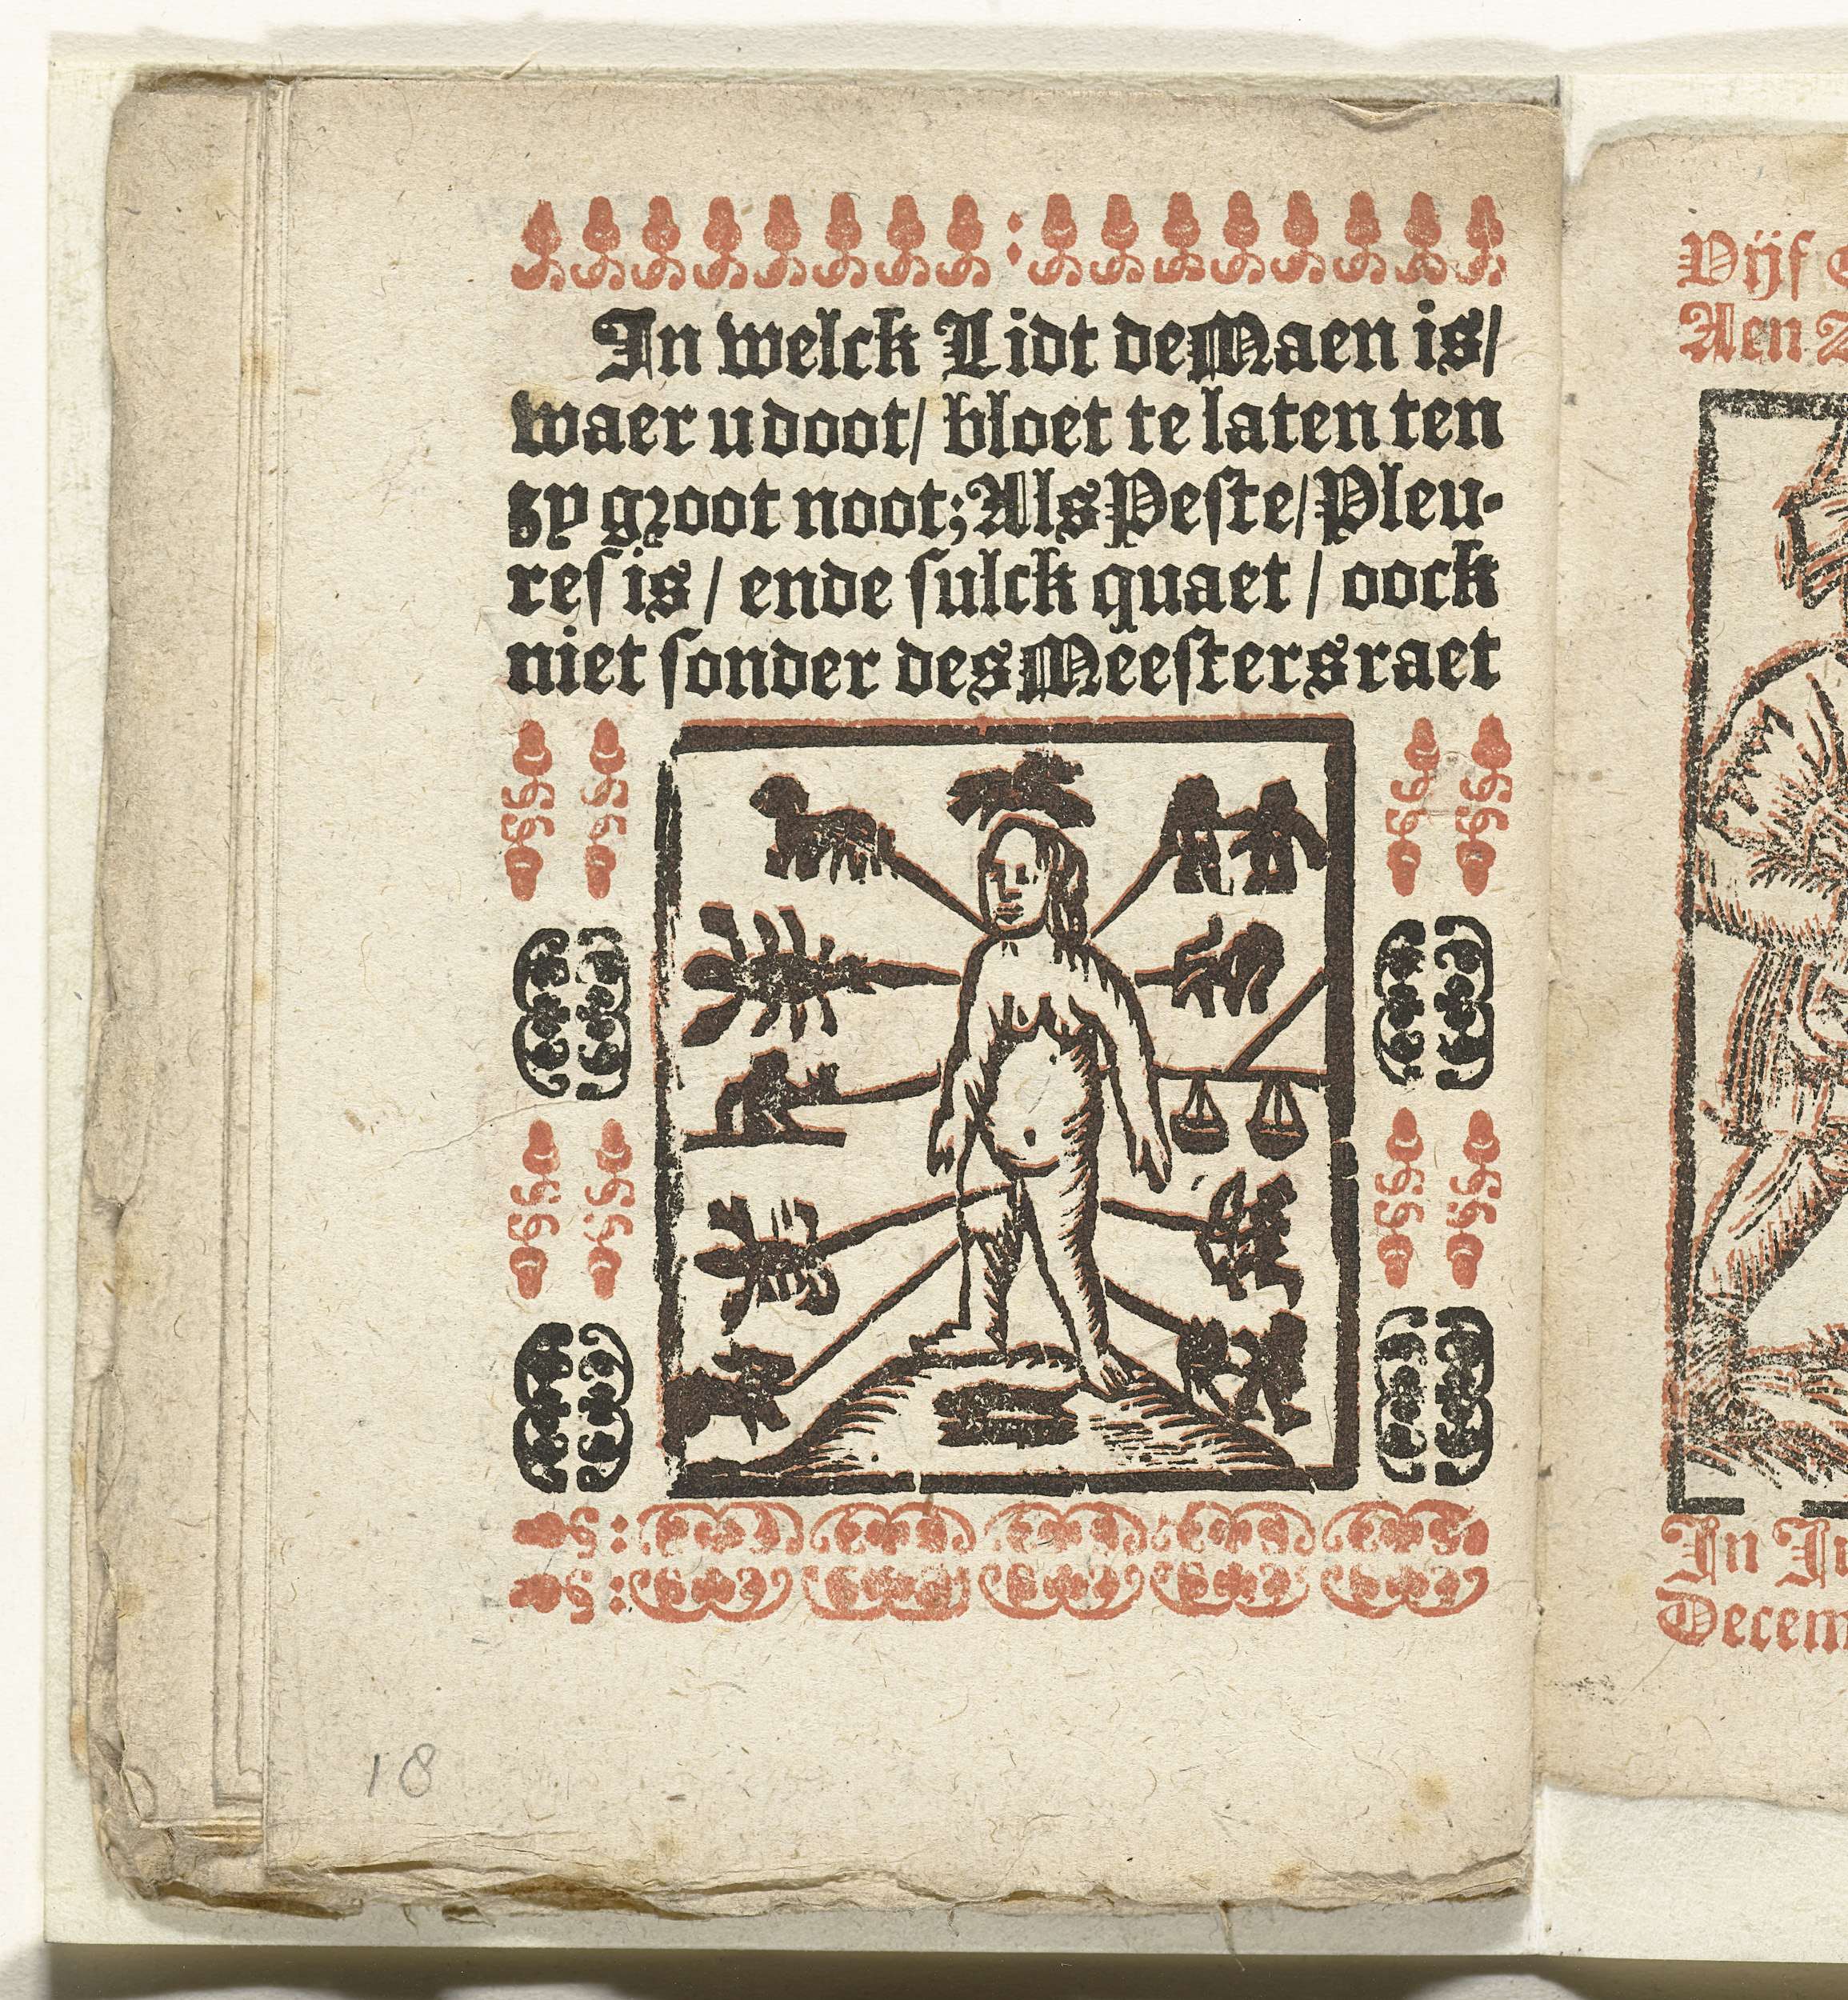 In welck Lidt de Maen is/
waer u doot/ bloet te laten ten
zy groot noot; Als Peste/ Pleu-
resis/ ende sulck quaet/ oock
niet sonder des Meesters raet
18
Vijf
Aen
In
Decem